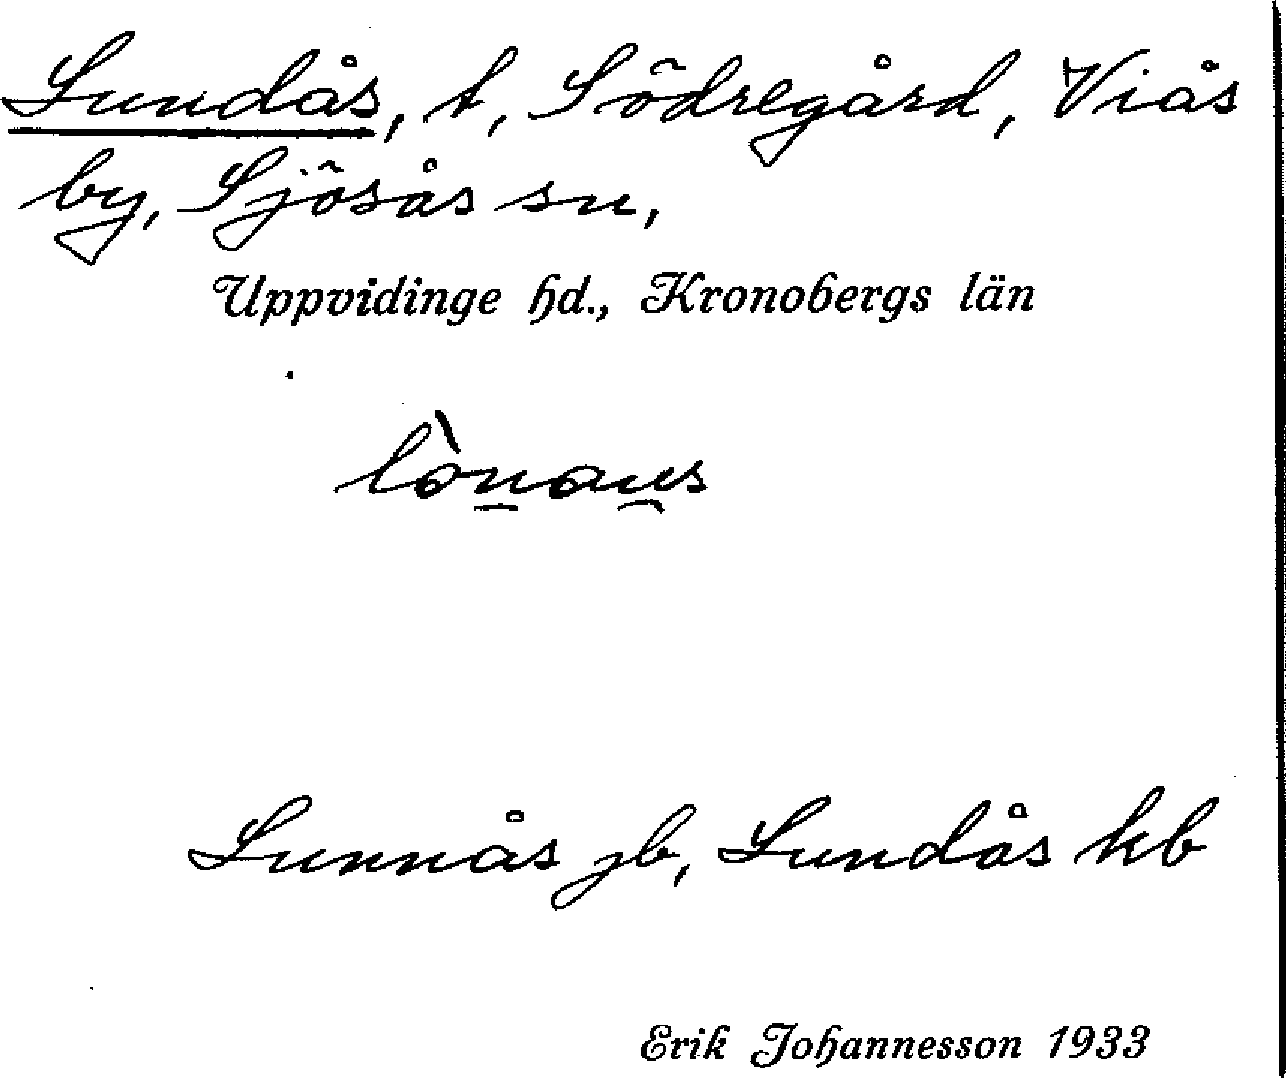 Lundås, t, Södregård, Viås
by, Sjösås sn,
Uppvidinge hd., Kronobergs län
lònau̯s
Lunnås jb, Lundås kb
Erik Johannesson 1933